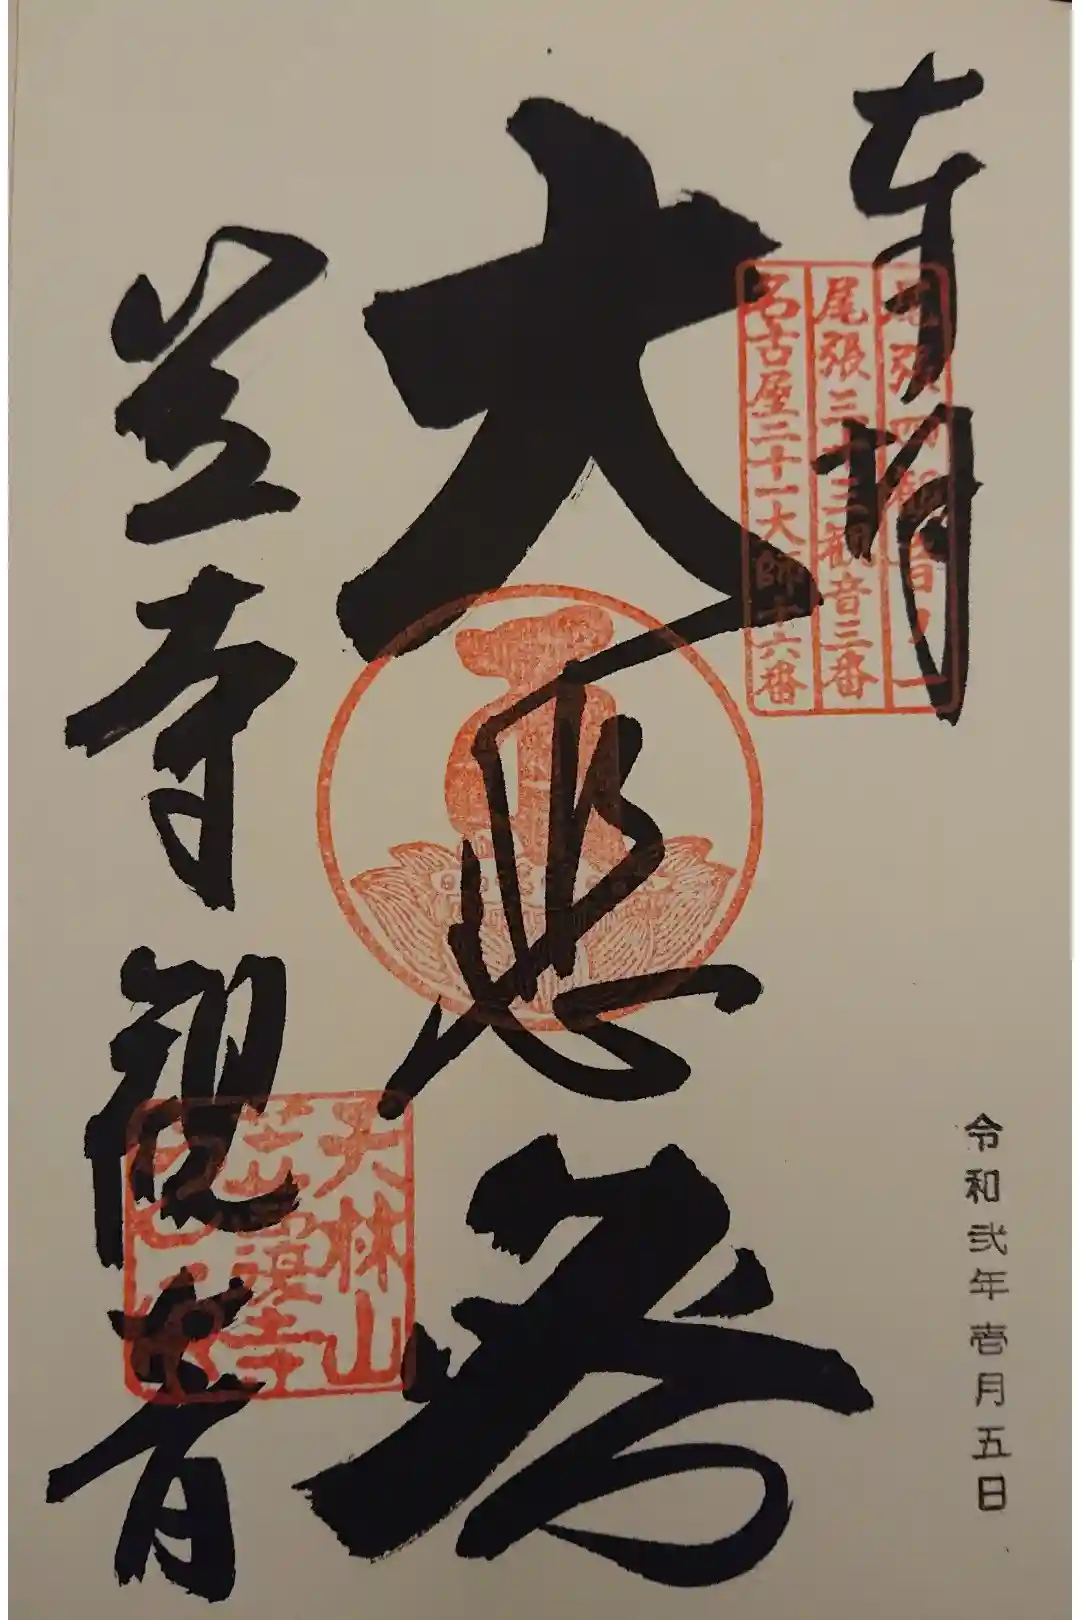 奉拝
尾張四観音ノ一
尾張三十三観音三番
名古屋二十一大師十六番
大悲殿
笠寺観音
天林山
笠覆寺
之印
令和弐年壱月五日